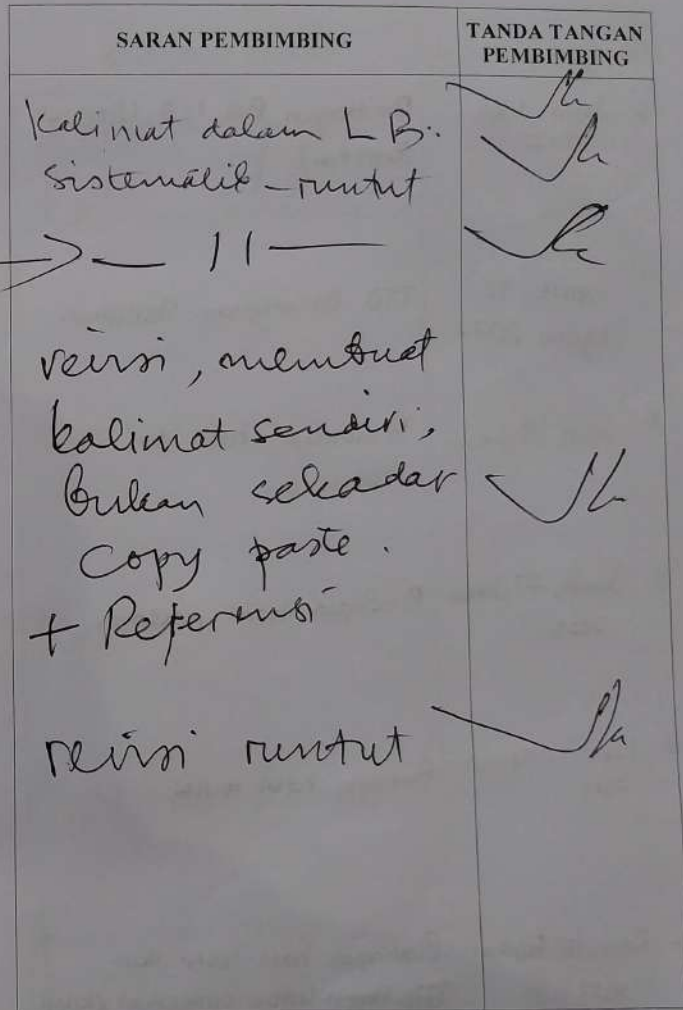 SARAN PEMBIMBING
TANDA TANGAN
PEMBIMBING
Kalimat dalam LB..
Sistematik - runtut
— 11 —
revisi, membuat
kalimat sendiri,
bukan sekadar
copy paste.
+ Referensi
revisi runtut